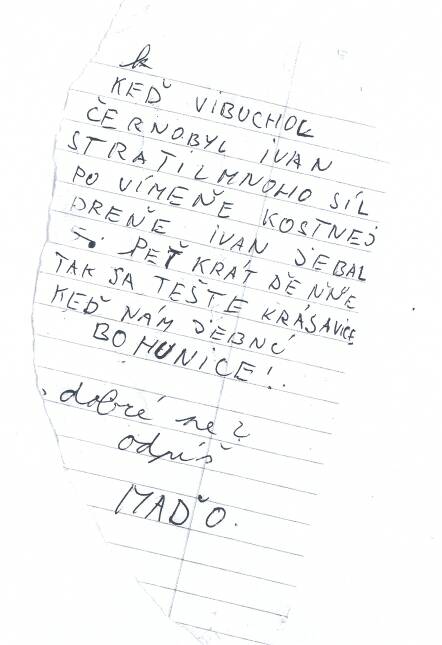 KEĎ VIBUCHOL
ČERNOBYL IVAN
STRATIL MNOHO SÍL
PO VÍMEŇE KOSTNEJ
DREŇE IVAN JEBAL
5. PEŤ KRÁT DĚNŇE
TAK SA TEŠTE KRÁSAVICE
KEĎ NÁM JEBNÚ
BOHUNICE!
dobré ne?
odpíš
MAĎO.